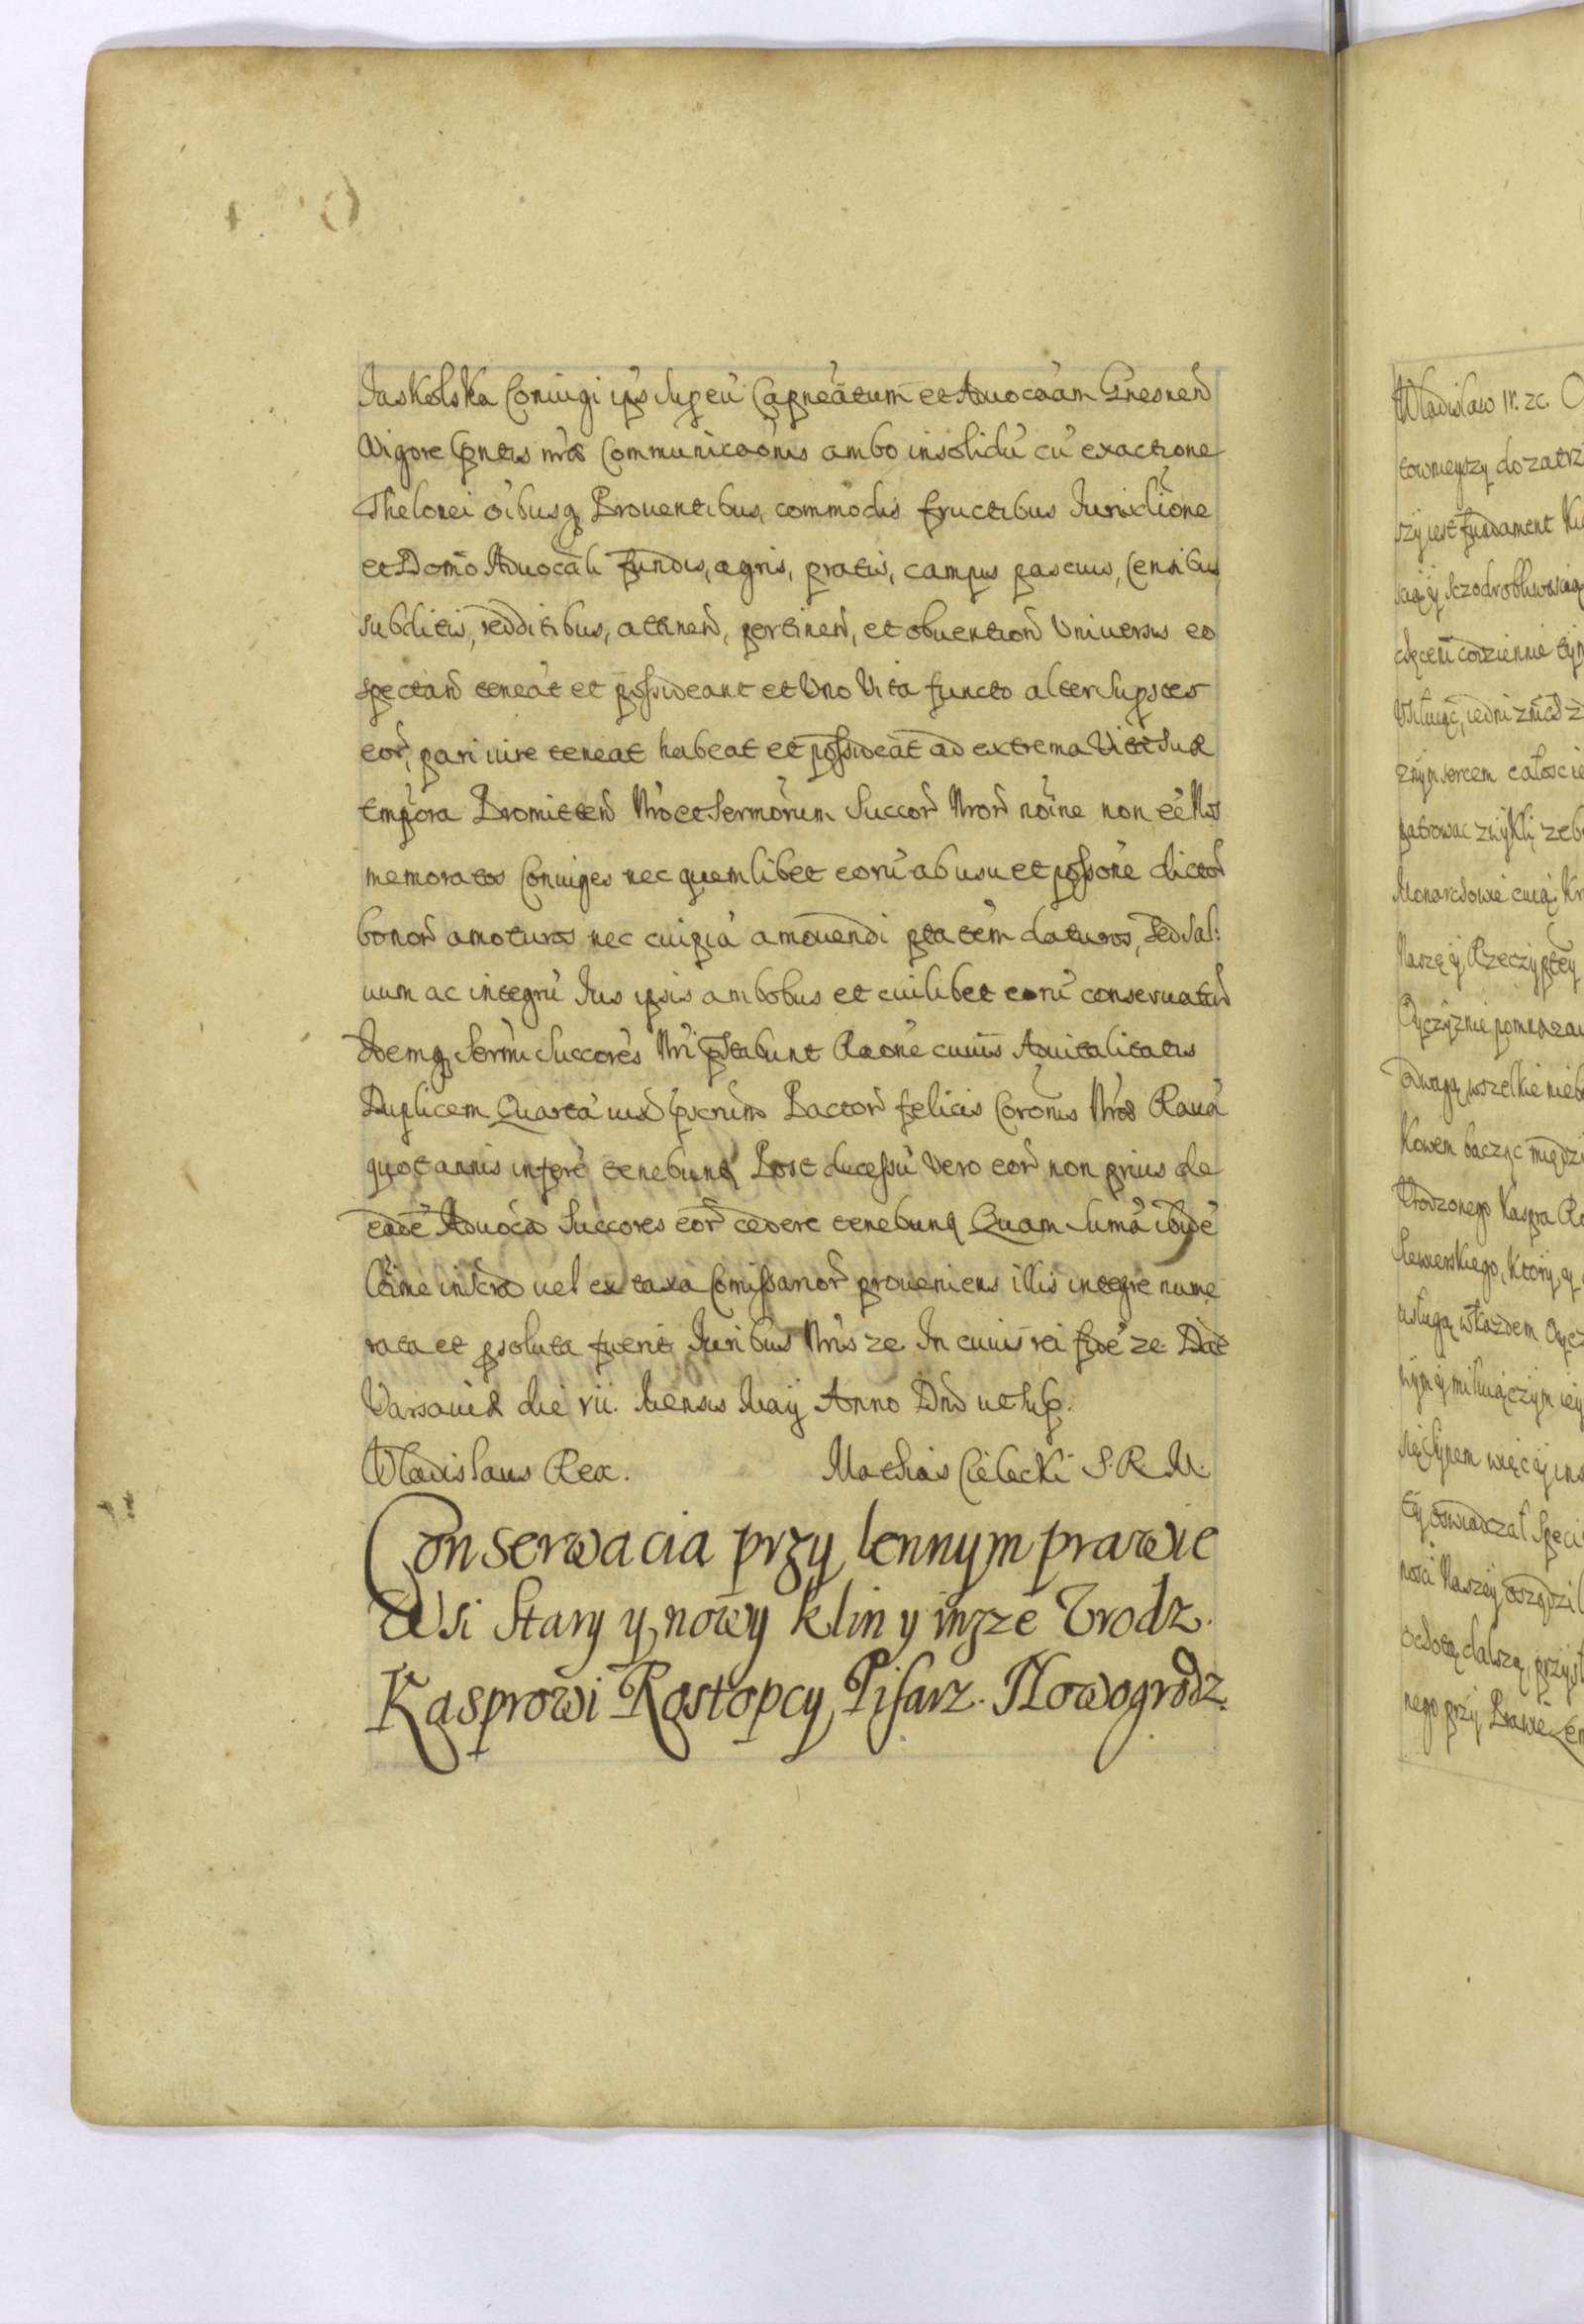 Jaskolska Coniugi ip̃s sup eũ Capneãtum et Aduocãam Gnesneñ
Vigore p̃ntis nr̃æ Communicaõnis ambo insolidũ cũ exactione
Thelonei oĩbusq̃ Prouentibus, commodis fructibus Jurisdiõne
et Domo Aduocãli fundis, agris, pratis, campis pascuis, Censibus
subditis, redditibus, attineñ, pertineñ, et obuentioñ Vniversis eo
spectañ teneãt et possideant et Vno Vita functo alter supstes
eor̃, pari iure teneat habeat et possideãt ad extrema Vitæ suæ
tempora Promitteñ Nr̃o et Sermõrum Succor̃ Nror̃ noĩne non eẽ Nos
memoratos Coniuges nec quemlibet eorũ ab usu et possõne dictor̃
bonor̃ amoturos nec cuipiã amouendi ptatẽm daturos, sed sal:
uum ac integrũ Jus ipsis ambobus et cuilibet eorũ conseruatur̃
Idemq̃ Sermi Succorẽs Nr̃i p̃stabunt Raõne cuiũs Aduitalitatis
Duplicem Quartã iuxͣ p̃scrũm Pactor̃ felicis Coroñis Nr̃æ Rauã
quotannis inferrẽ tenebunt̃ Post decessũ vero eor̃ non prius de
eadẽ Aduocã Succores eor̃ cedere tenebunt̃ Quam Sumã ibidẽ
ltĩme inscra uel ex taxa Comissarior̃ proueniens illis integre nume
rata et psoluta fuerit Juribus Nr̃is zc. In cuius rei fidẽ zc. Dat
Varsauiæ die vii. Mensis Maij Anno Dñi ut sup.
Wladislaus Rex. Mathias Cielecki S. R. M.
Conserwacia przy lennym prawie
Wsi Stary y nowy klin y insze Vrodz.
Kasprowi Rostopcy, Pisarz. Nowogrodz.
Wladislaw IV. zc.
townieyszy do zatrz
szy iest fundament
scią y sczodrobliwoscią
chęceni codziennie tym
znym sercem całoscie
patrowac zwykli, zeb
Naszę y Rzeczyptey
Oyczyznie pomnaza
odwagą wszelkie nieb
kowem bacząc między
Vrodzonego Kaspra Ro
Siewierskiego, ktory, y
usługą w każdem Oycz
nym y miłuiączym iey
się Synem więcey ins
ty oswiadczał Speci
nosci Naszey osządzil
ochotę dalszą, przyst
nego przy Prawie Len